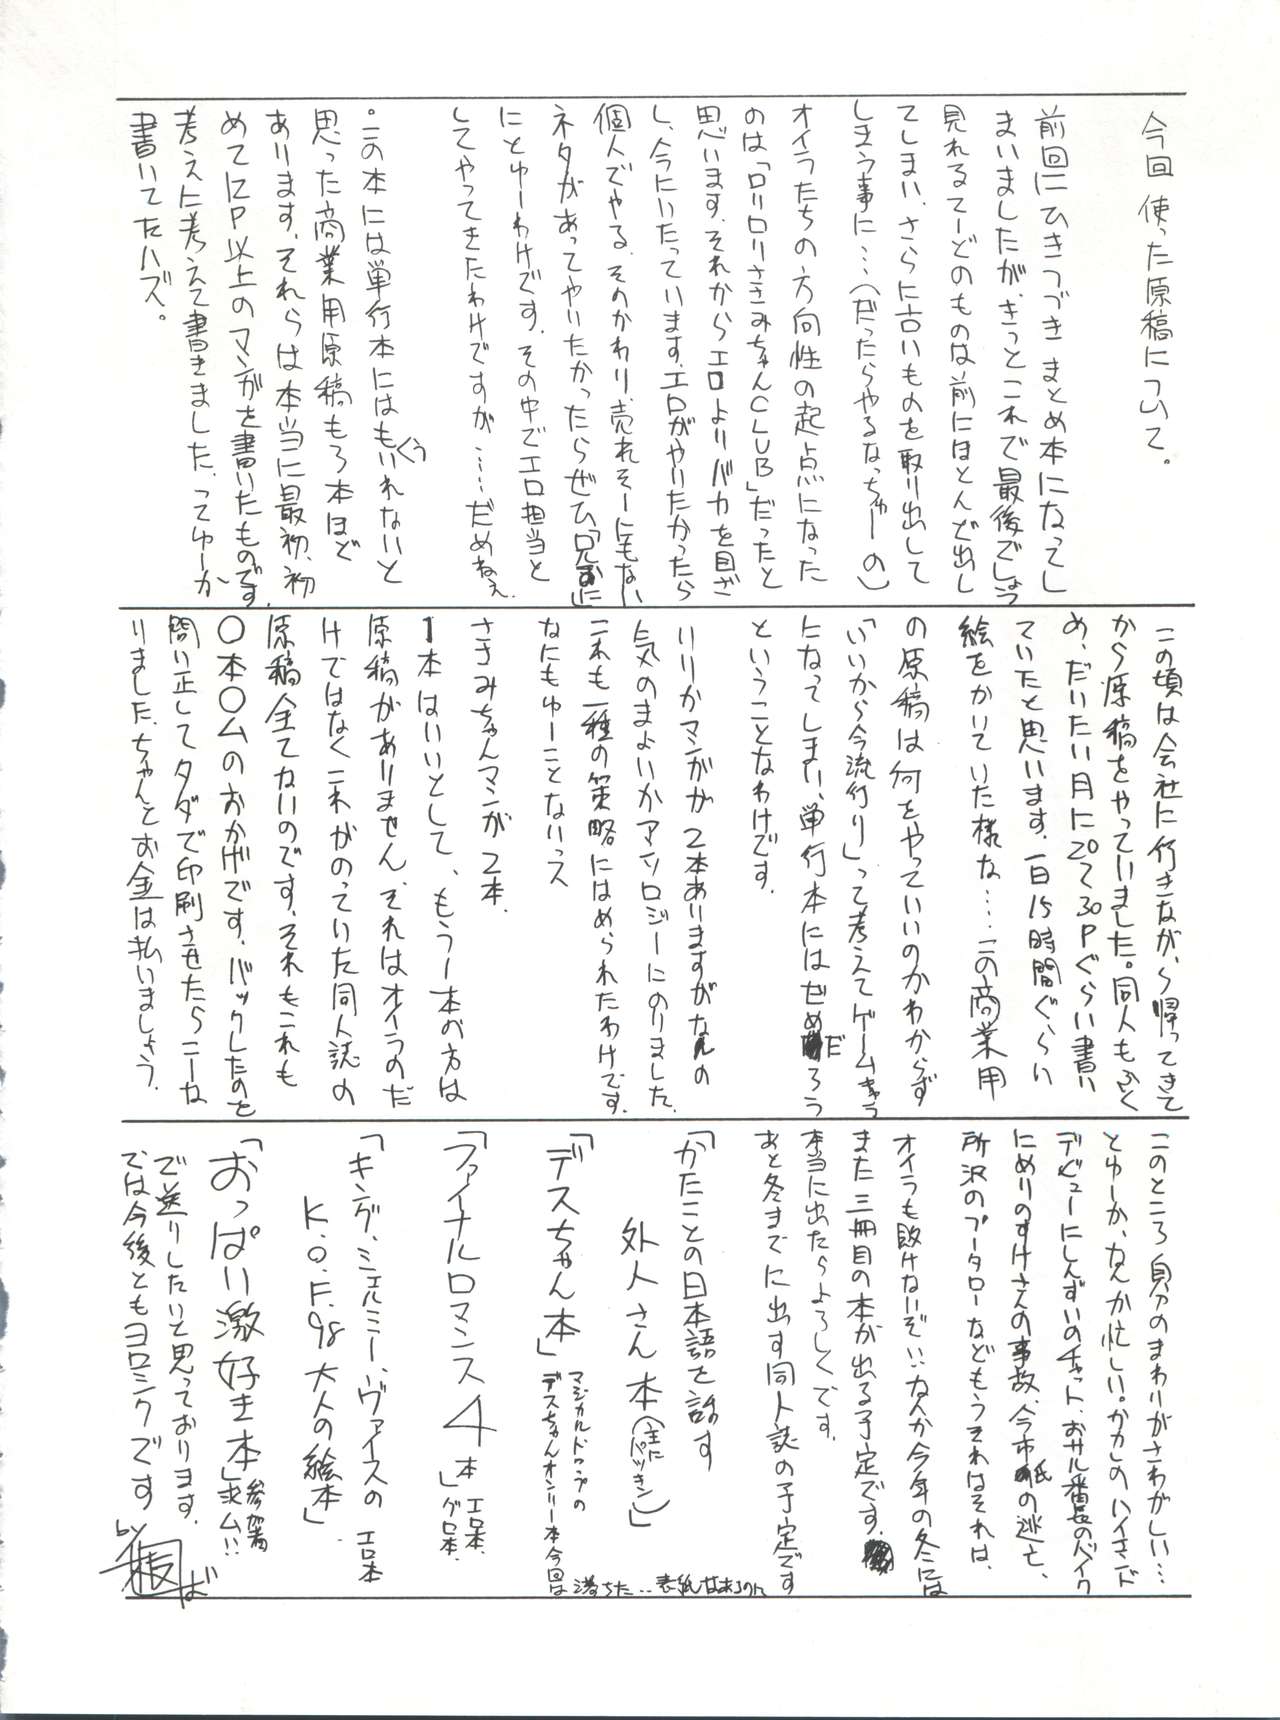 今回使った原稿について。
前回にひきつづきまとめ本になってし
まいましたが、きっとこれで最後でしょう
見れるてーどのものは前にほとんど出し
てしまい、さらに古いものを取り出して
しまう事に…(だったらやるなっちゅーの)
オイラたちの方向性の起点になった
のは「ロリロリささみちゃんCLUB」だったと
思います。それからエロよりバカを目ざ
し、今にいたっています。エロがやりたかったら
個人でやる、そのかわり、売れそーにもない
ネタがあってやりたかったらぜひ
にとゆーわけです。その中でエロ担当と
してやってきたわけですが……だめねぇ
。この本には単行本にはもういれないと
思った商業用原稿も3本ほど
あります。それらは本当に最初、初
めて2P以上のマンガを書いたものです。
考えに考えて書きました、ってゆーか
書いてたハズ。
この頃は会社に行きながら帰ってきて
から原稿をやっていました。同人もふく
め、だいたい月に20〜30Pぐらい書い
ていたと思います。一日15時間ぐらい
絵をかいていた様な…この商業用
の原稿は何をやっていいのかわからず
「いいから今流行り」って考えてゲームきゃら
になってしまい、単行本にはぜつめだろう
ということなわけです。
りりかマンガが2本ありますがなんの
気のまよいかアンソロジーにのりました。
これも一種の策略にはめられたわけです。
なにもゆーことないっス
ささみちゃんマンガ2本.
1本はいいとして、もう一本の方は
原稿がありません。それはオイラのだ
けではなくこれがのっていた同人誌の
原稿全てないのです。それもこれも
〇本〇ムのおかげです。バックしたのを
問い正してタダで印刷させたらこーな
りました。ちゃんとお金は払いましょう。
このところ自分のまわりがさわがしい…
とゆーか、なんか忙しい。かカしのハイさんド
デビューにしんすいのチャット、おサル番長のバイク
にめりのすけさんの事故、今市氏の逃亡、
所沢のプータローなどもうそれはそれは、
オイラも敗けないぞい、なんか今年の冬には
また三冊目の本が出る予定です。
本当に出たらよろしくです。
あと冬までに出す同人誌の予定です
「かたことの日本語を話す
外人さん本(主にパツキン)」
「デスちゃん本」 マジカルドロップの
デスちゃんオンリー本今回は落ちた‥表紙は
「ファイナルロマンス4本」 エロ本.
グロ本.
「キング、シェルミー、ヴァイスの
K.O.F.98大人の絵本」 エロ本
「おっぱい激好き本」参加者
求ム!!
で送りしたいと思っております。
では今後ともヨロシクです
by